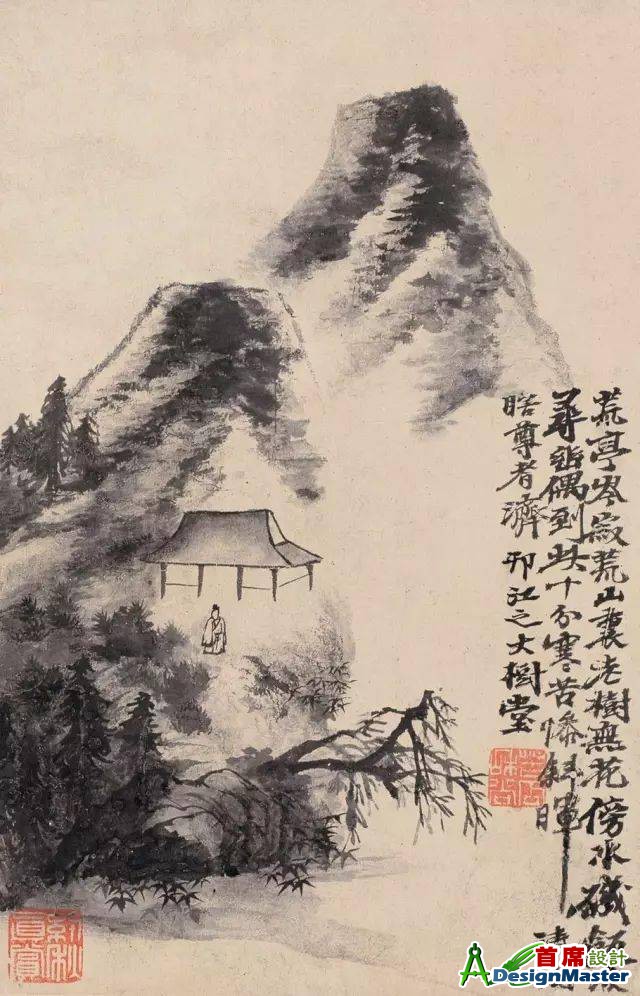 荒亭岑寂荒山裏老樹無花傍水磯飯後
尋詩偶到此十分寒苦慘斜暉 清湘
瞎尊者濟 邗江之大樹堂
首席設計
DesignMaster